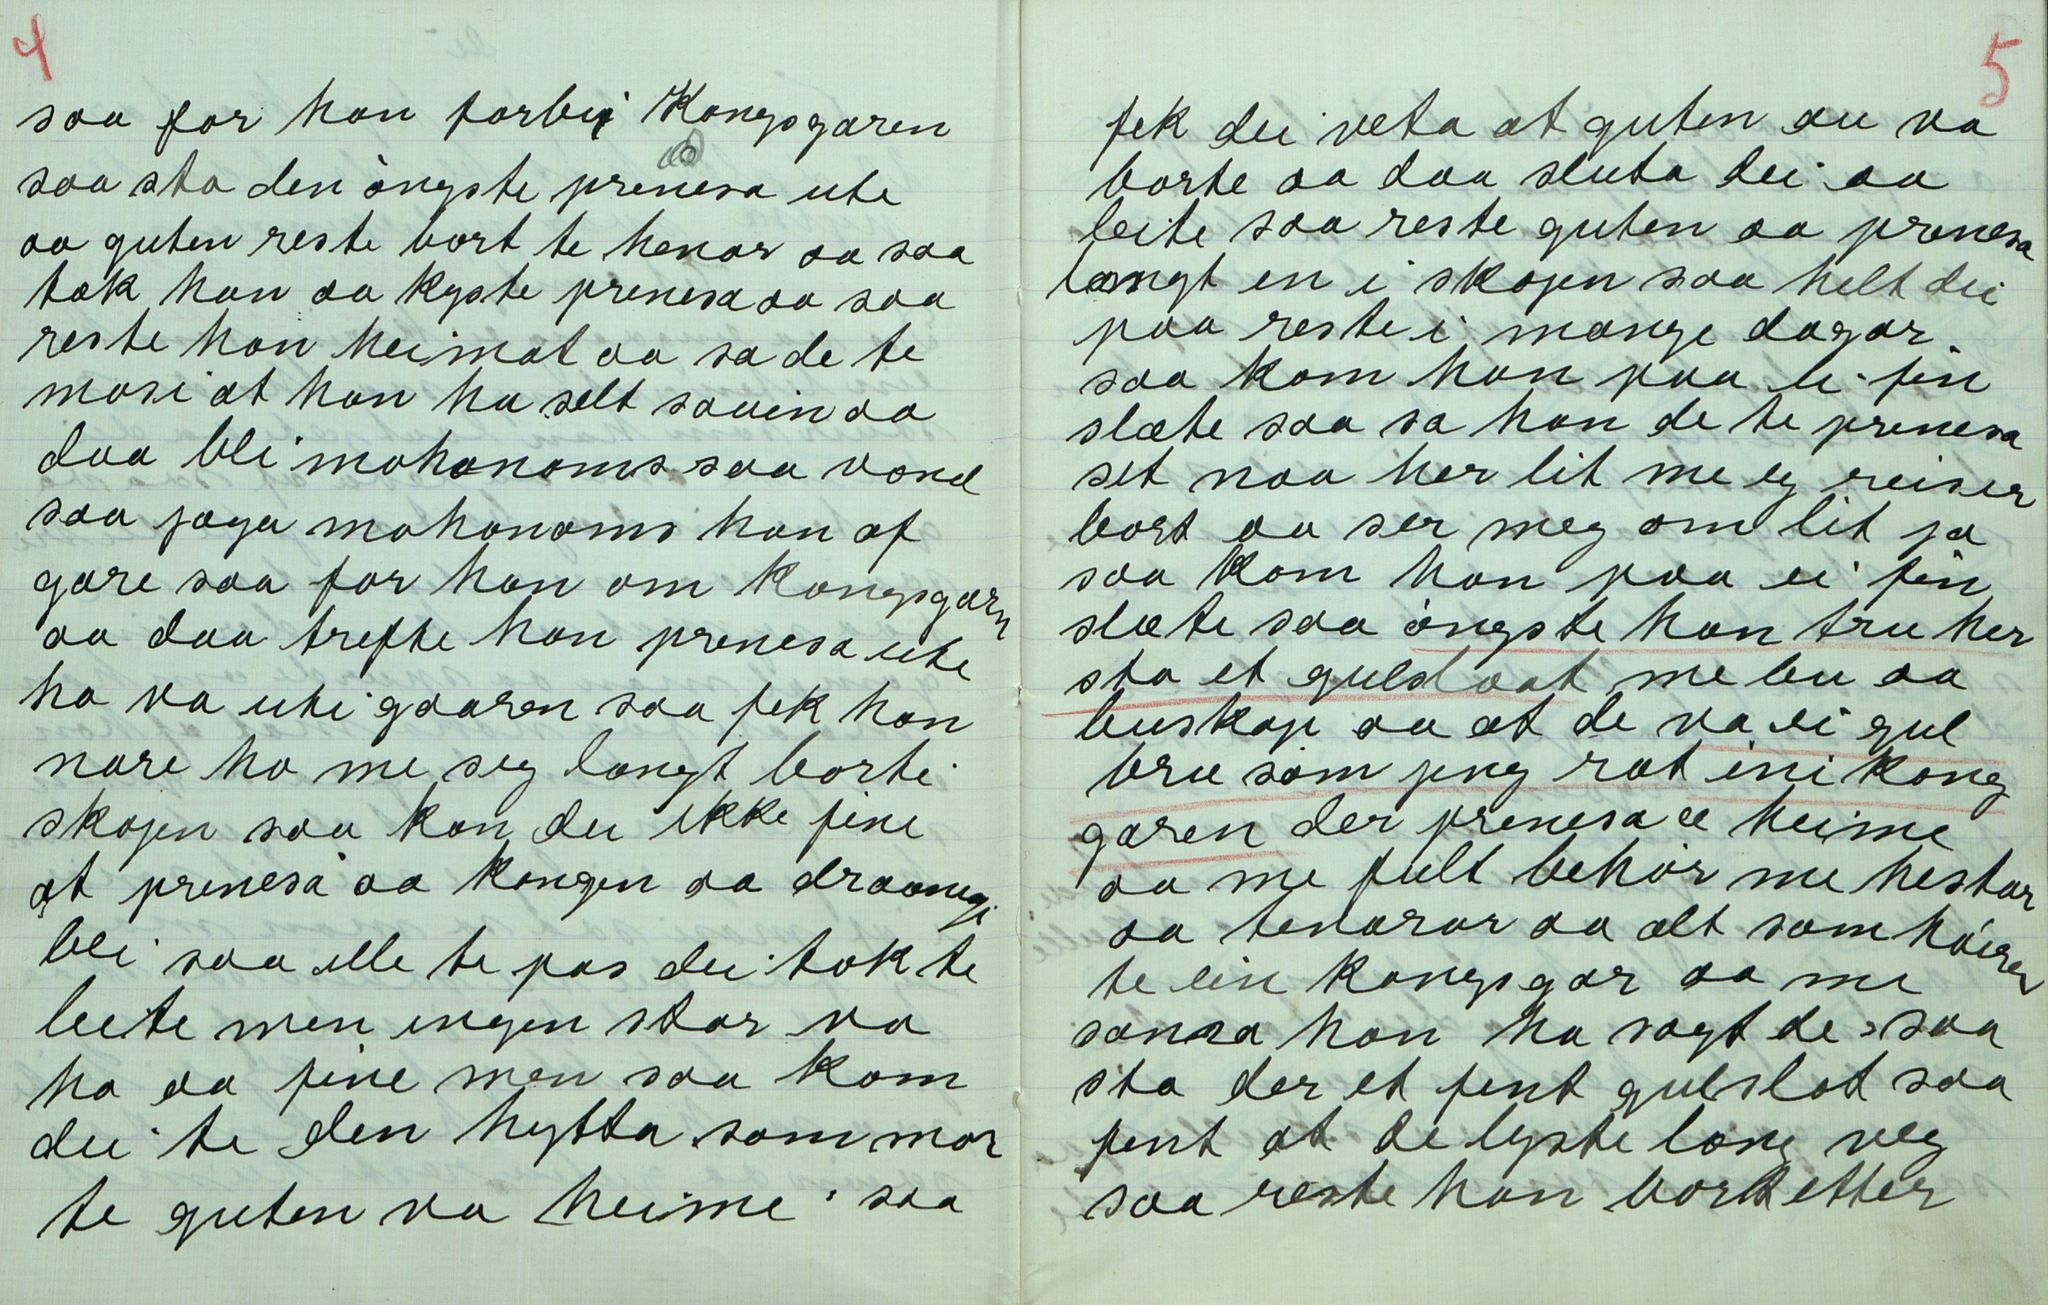 4
saa for han forbi Kongsgaren
saa sto den òngste prenesa ute
aa guten reste bort te henar aa saa
tok han aa kyste prenesa aa saa
reste han heimat aa sa de te
mosi at han ha selt sauin aa
daa blei mohanoms saa vond
saa joga mohanoms han af
gare saa for han om Kongsgarn
aa daa trefte han prenesa ute
ho va uti gaaren saa fek han
nare ho me seg langt borti
skogen saa kon dei ikke fine
at prenesa aa kongen aa draanengi
blei saa ille te pas dei tok te
leite men ingen star va
ho aa fine men saa kom
dei te den hytta som mor
te guten va heime saa
5
fek dei veta at guten au va
borte aa daa sluta dei aa
leite saa reste guten aa prenesa
langt en i skogen saa helt dei
paa reste i mange dagar.
saa kom han paa ei fin
slæte saa sa han de te prenesa
set naa her lit me eg reiser
bort aa ser meg om lit ja
saa kom han paa ei fin
slæte saa òngste han tru her
sto et guldslaat me bu aa
buskap aa at de va ei gul
bru som jng rat ini kong
garen der prenesa æ heime
aa me fult behòr me hestar
aa tenarar aa alt som hòirer
te ein kongsgar aa me
sama han ha sagt de saa
sto der et fent gulslot saa
fent at de lyste lang veg
saa reste han bort etter